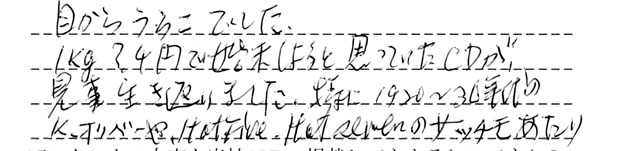 目からうろこでした。
1kg?4円で始末しようと思っていたCDが、
見事生き返りました。特に1920〜30年代の
K.オリバーや、Hotfive、Hotsevenのサッチモあたり